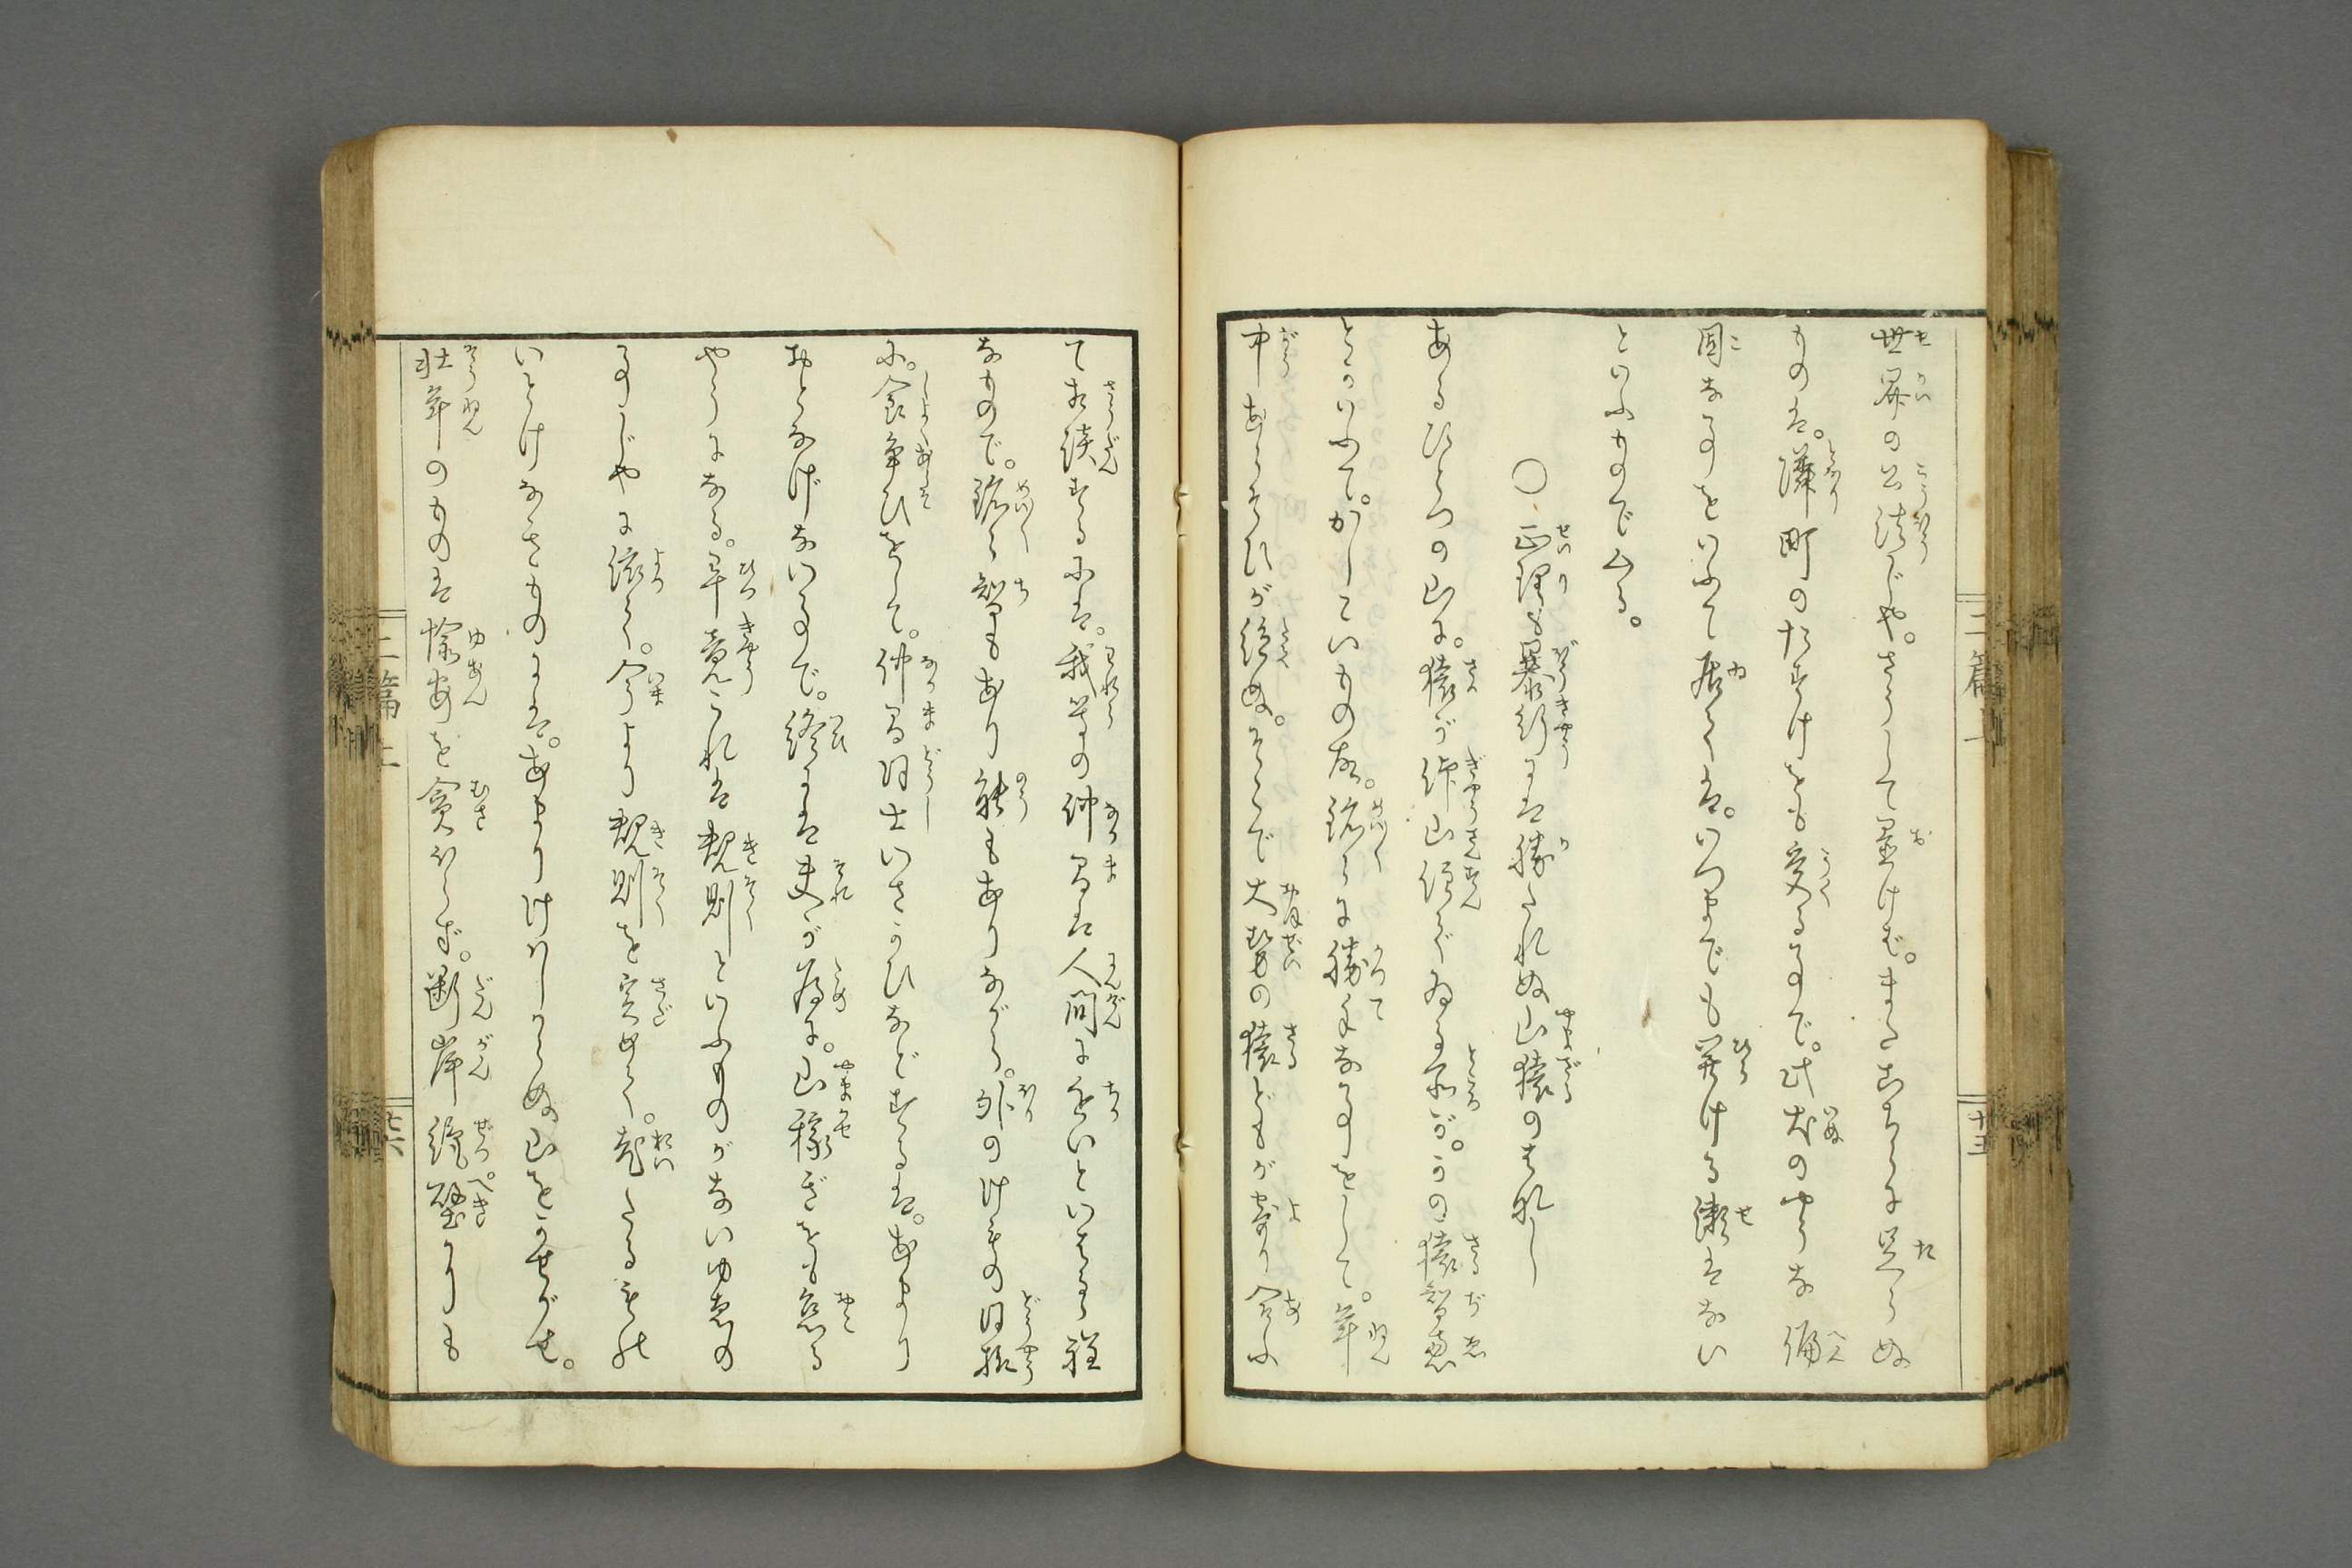 世界の公法じや。さうして置けば。またこちらに足らぬ
ものは。隣町のたすけをも受るすで。此犬のやうな偏
固なことをいふて居ては。いつまでも開ける瀬はない
といふものでム る。
○正理も暴行には勝たれぬ山猿のはなし
あるひとつの山に。猿が仰山住でゐる所が。この猿智恵
とかいふて。かしこいものゆゑ。銘々に勝手なことをして。年
中あらそひが絶ぬ。そこで大勢の猿どもが寄り合ふ
て相談するには。我等の仲間は人間に近いといはるゝ程
なもので。銘々智もあり能もありながら。外のけものと同様
に。食争ひをして。仲間同士いさかひなどするは。あまり
おとなげないことで。終には夫が為に。山稼ぎをも怠る
やうになる。畢竟これは規則といふものがないゆゑの
ことじやに依て。今より規則を定めて。老たるもの
いとけなきものには。あまりけはしからぬ山をかせがせ。
壮年のものは愉安を貪ぼらず。断岸絶壁よりも
二篇上
十五
二篇上
十六